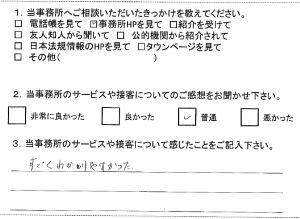 1. 当事務所へご相談いただいたきっかけを教えてください。
□ 電話帳を見て ☑事務所HPを見て □紹介を受けて
□ 友人知人から聞いて □ 公的機関から紹介されて
□ 日本法規情報のHPを見て □タウンページを見て
□ その他( )
2. 当事務所のサービスや接客についてのご感想をお聞かせ下さい。
□ 非常に良かった □ 良かった ☑ 普通 □ 悪かった
3. 当事務所のサービスや接客について感じたことをご記入下さい。
すごくわかりやすかった